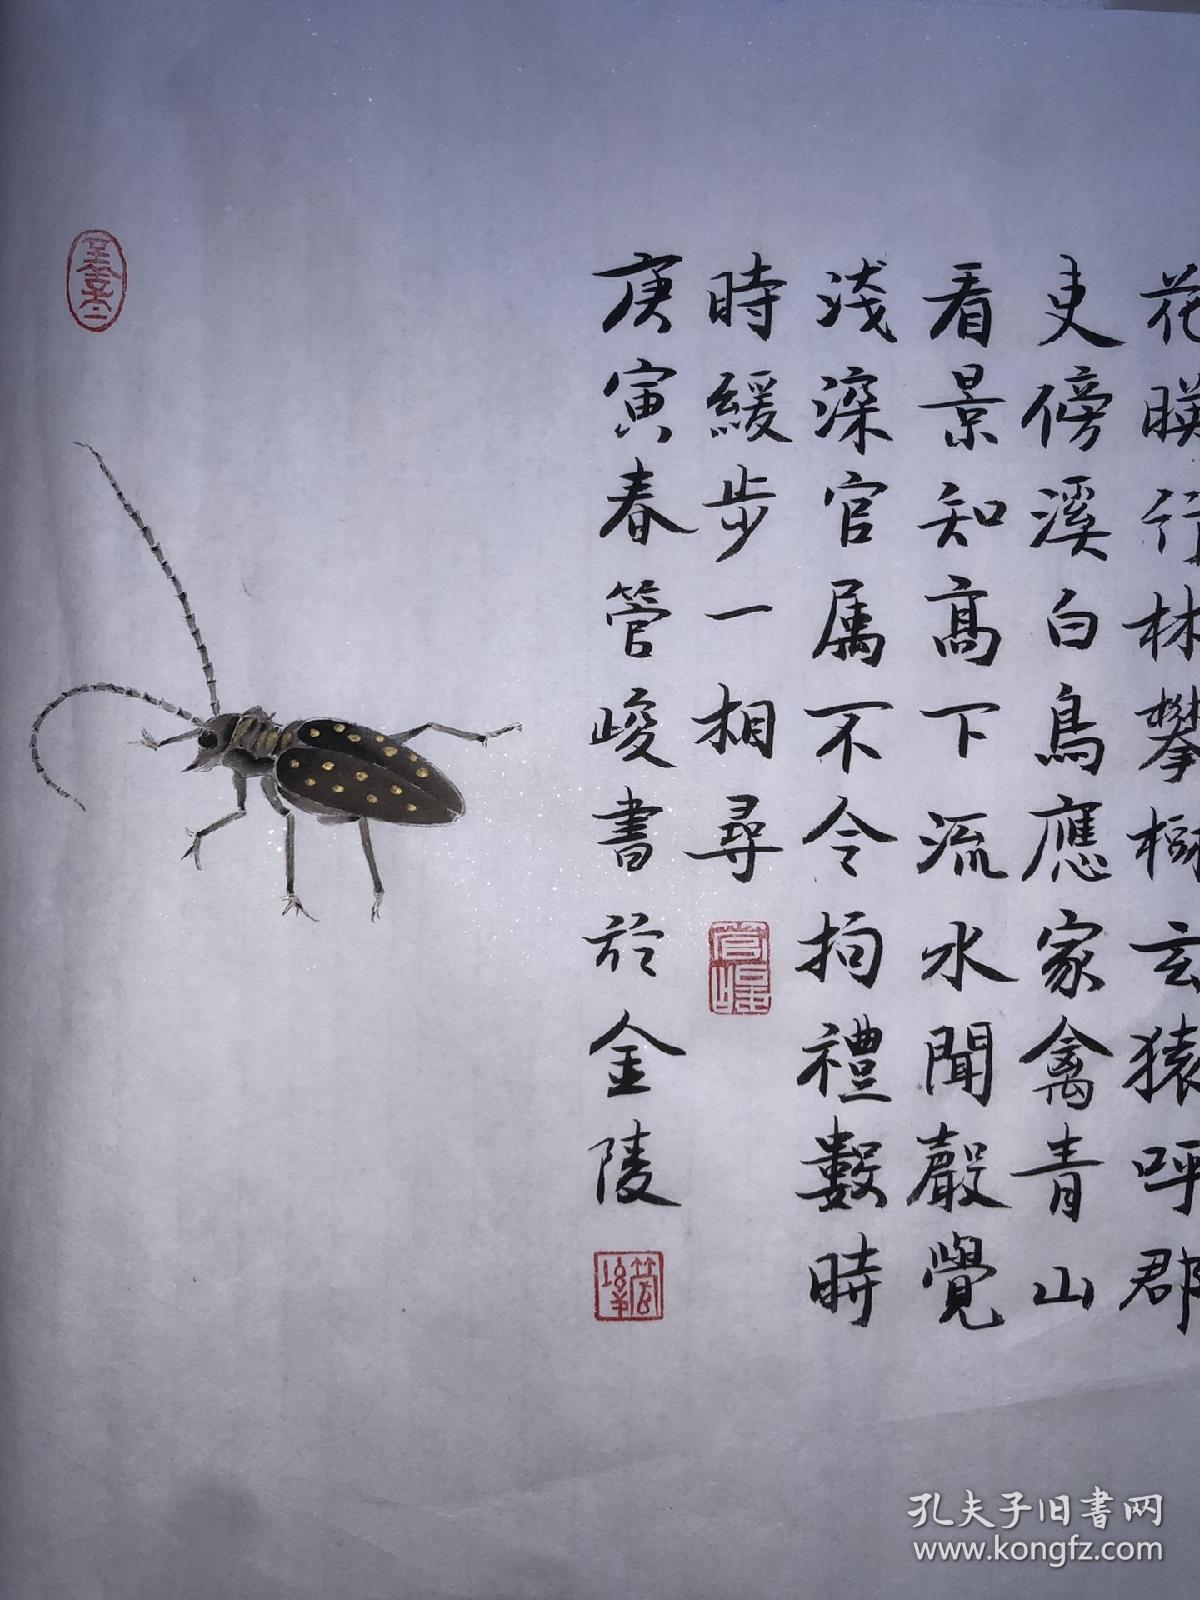 花暎行林攀樹玄猿呼郡
吏傍溪白鳥應家禽青山
看景知高下流水聞聲覺
淺深官属不令拘禮數時
時緩步一相尋
庚寅春管峻書於金陵
管峻
管峻
孔夫子旧书网
www.kongfz.com